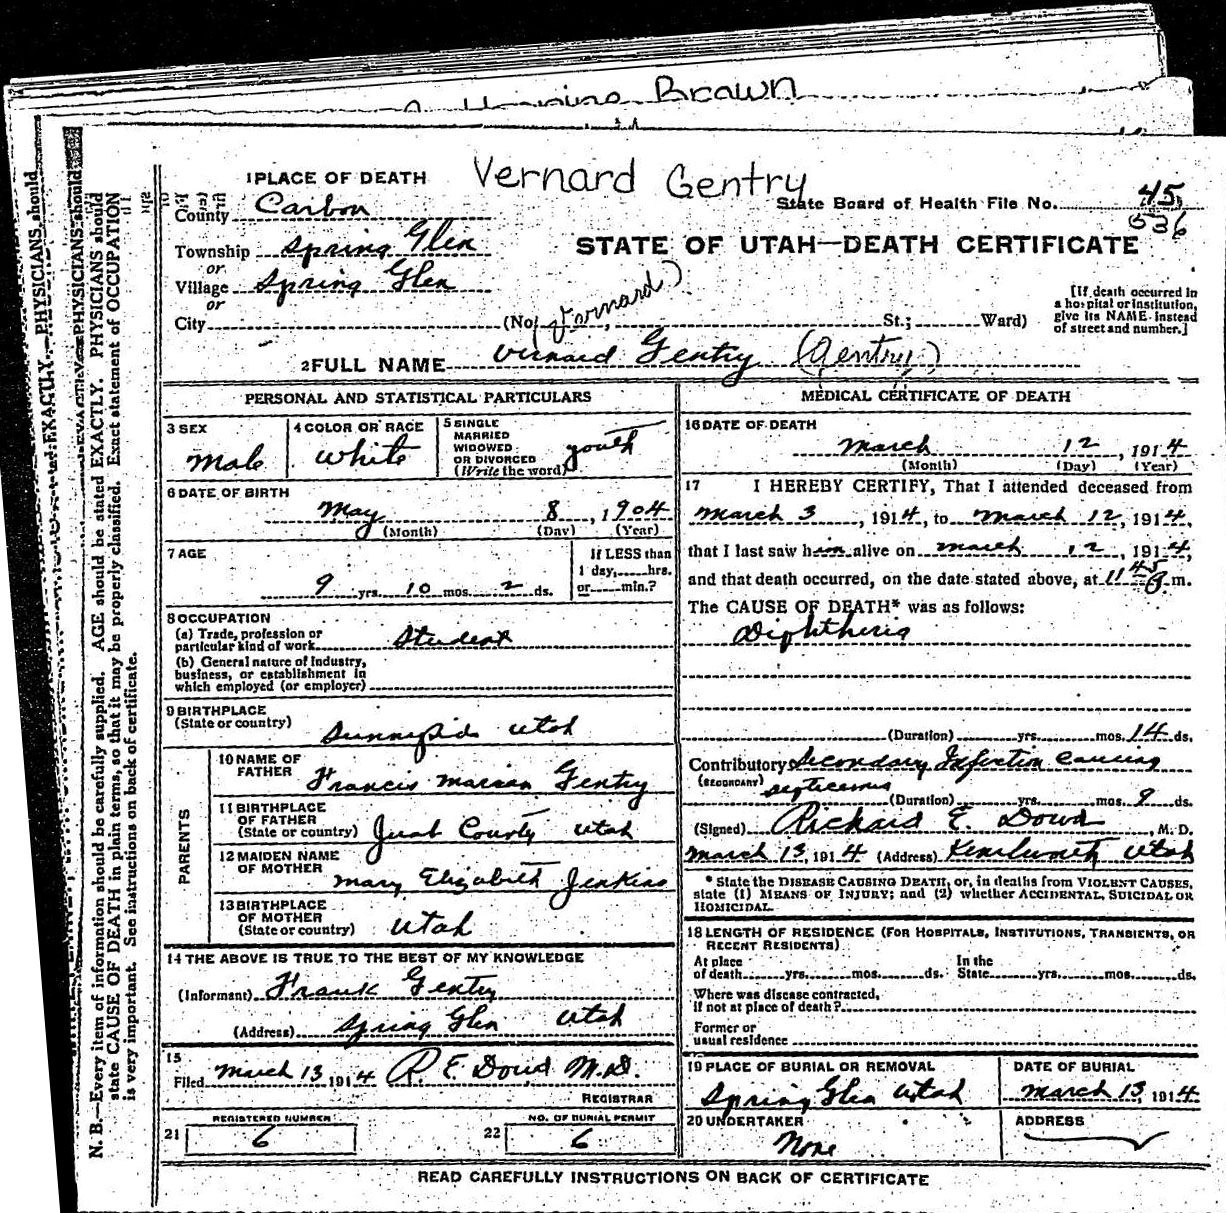 Brown
Vernard Gentry
1 PLACE OF DEATH
County Carbon
State Board of Health File No. 45
536
Township Spring Glen
STATE OF UTAH—DEATH CERTIFICATE
or
Village Spring Glen
or
City (No. St.; Ward)
(Vernard)
[If death occurred in
a hospital or institution,
give its NAME instead
of street and number.]
2 FULL NAME Vernard Gentry (Gentry)
PERSONAL AND STATISTICAL PARTICULARS
3 SEX
Male
4 COLOR OR RACE
White
5 SINGLE
MARRIED
WIDOWED
OR DIVORCED
(Write the word)
youth
6 DATE OF BIRTH
May 8, 1904
(Month) (Day) (Year)
7 AGE
9 yrs. 10 mos. 2 ds.
If LESS than
1 day, hrs.
or min.?
8 OCCUPATION
(a) Trade, profession or
particular kind of work Student
(b) General nature of Industry,
business, or establishment in
which employed (or employer)
9 BIRTHPLACE
(State or country)
Sunnyside Utah
PARENTS
10 NAME OF
FATHER
Francis Marion Gentry
11 BIRTHPLACE
OF FATHER
(State or country) Juab County Utah
12 MAIDEN NAME
OF MOTHER
Mary Elizabeth Jenkins
13 BIRTHPLACE
OF MOTHER
(State or country) Utah
14 THE ABOVE IS TRUE TO THE BEST OF MY KNOWLEDGE
(Informant) Frank Gentry
(Address) Spring Glen Utah
15
Filed March 13, 1914 R. E. Dowd M.D.
REGISTRAR
REGISTERED NUMBER
21 6
NO. OF BURIAL PERMIT
22 6
MEDICAL CERTIFICATE OF DEATH
16 DATE OF DEATH
March 12, 1914
(Month) (Day) (Year)
17 I HEREBY CERTIFY, That I attended deceased from
March 3, 1914, to March 12, 1914,
that I last saw him alive on March 12, 1914,
and that death occurred, on the date stated above, at 11 45 m.
The CAUSE OF DEATH* was as follows:
Diphtheria
(Duration) yrs. mos. 14 ds.
Contributory Secondary Infection causing
(SECONDARY) septicemia
(Duration) yrs. mos. 9 ds.
(Signed) Richard E. Dowd, M. D.
March 13, 1914 (Address) Kenilworth Utah
* State the DISEASE CAUSING DEATH, or, in deaths from VIOLENT CAUSES,
state (1) MEANS OF INJURY; and (2) whether ACCIDENTAL, SUICIDAL OR
HOMICIDAL.
18 LENGTH OF RESIDENCE (FOR HOSPITALS, INSTITUTIONS, TRANSIENTS, OR
RECENT RESIDENTS)
At place
of death yrs. mos. ds.
In the
State yrs. mos. ds.
Where was disease contracted,
if not at place of death?
Former or
usual residence
19 PLACE OF BURIAL OR REMOVAL
Spring Glen Utah
DATE OF BURIAL
March 13, 1914
20 UNDERTAKER
None
ADDRESS
READ CAREFULLY INSTRUCTIONS ON BACK OF CERTIFICATE
N. B.—Every item of information should be carefully supplied. AGE should be stated EXACTLY. PHYSICIANS should
state CAUSE OF DEATH in plain terms, so that it may be properly classified. Exact statement of OCCUPATION
is very important. See instructions on back of certificate.